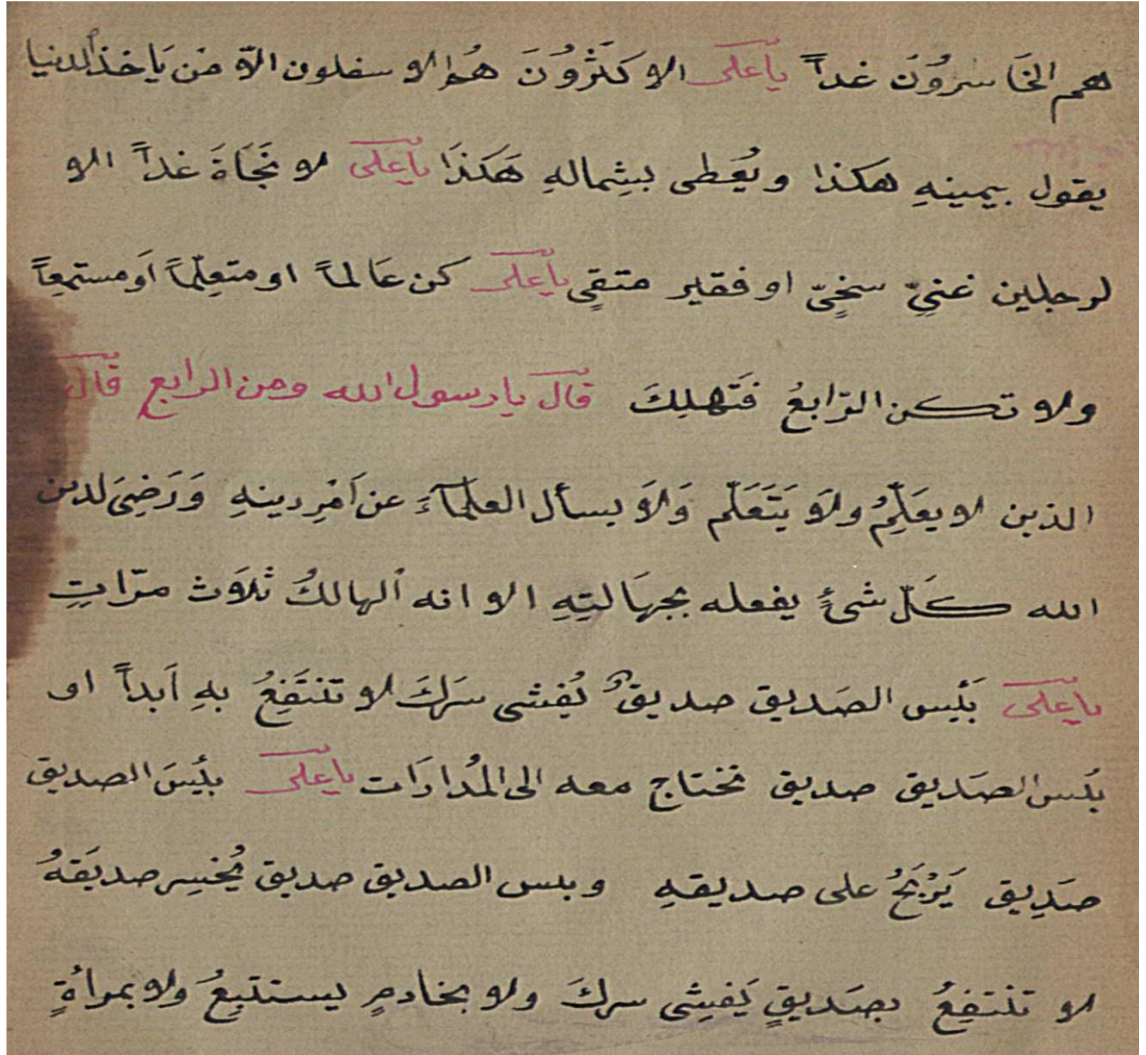 هم الخَاسروُنَ غداً يا على الاكثرُونَ هُم الاسفلون الّا من يَاخذ الدنيا
يقول بيمينهِ هكذا ويُعطى بشمالهِ هَكَذَا يا على لا نجَاةَ غداً الا
لرجلين غنىّ سخىّ او فقير متقىٍ يا على كن عَالماً او متعلِّماً اَو مستمعاً
ولا تكن الرّابعُ فَتَهلِكَ قال يا رسول الله ومن الرابع قال
الذين لا يعَلِّمُ ولَا يَتَعَلّم وَلَا يسأل العلمآءَ عن اَمرِ دينهِ وَرَضِىَ لدين
الله كلّ شئٍ يفعله بجهَالتِهِ الا انه الهالكُ ثلَاث مرّاتٍ
يا على بَئِس الصَديق صديقٌ يُفشى سرّكَ لا تنتفَعُ بهِ اَبداً او
بئس الصَديق صديق تحتاج معه الى المُدارَات يا على بئِسَ الصديق
صَدِيق يَرْبَحُ على صديقهِ وبئس الصديق صديق يُخسِر صديقَهُ
لا تنتفعُ بصَديقٍ يَفشِى سركَ ولا بخادمٍ يستتبعُ ولا بمرأةٍ